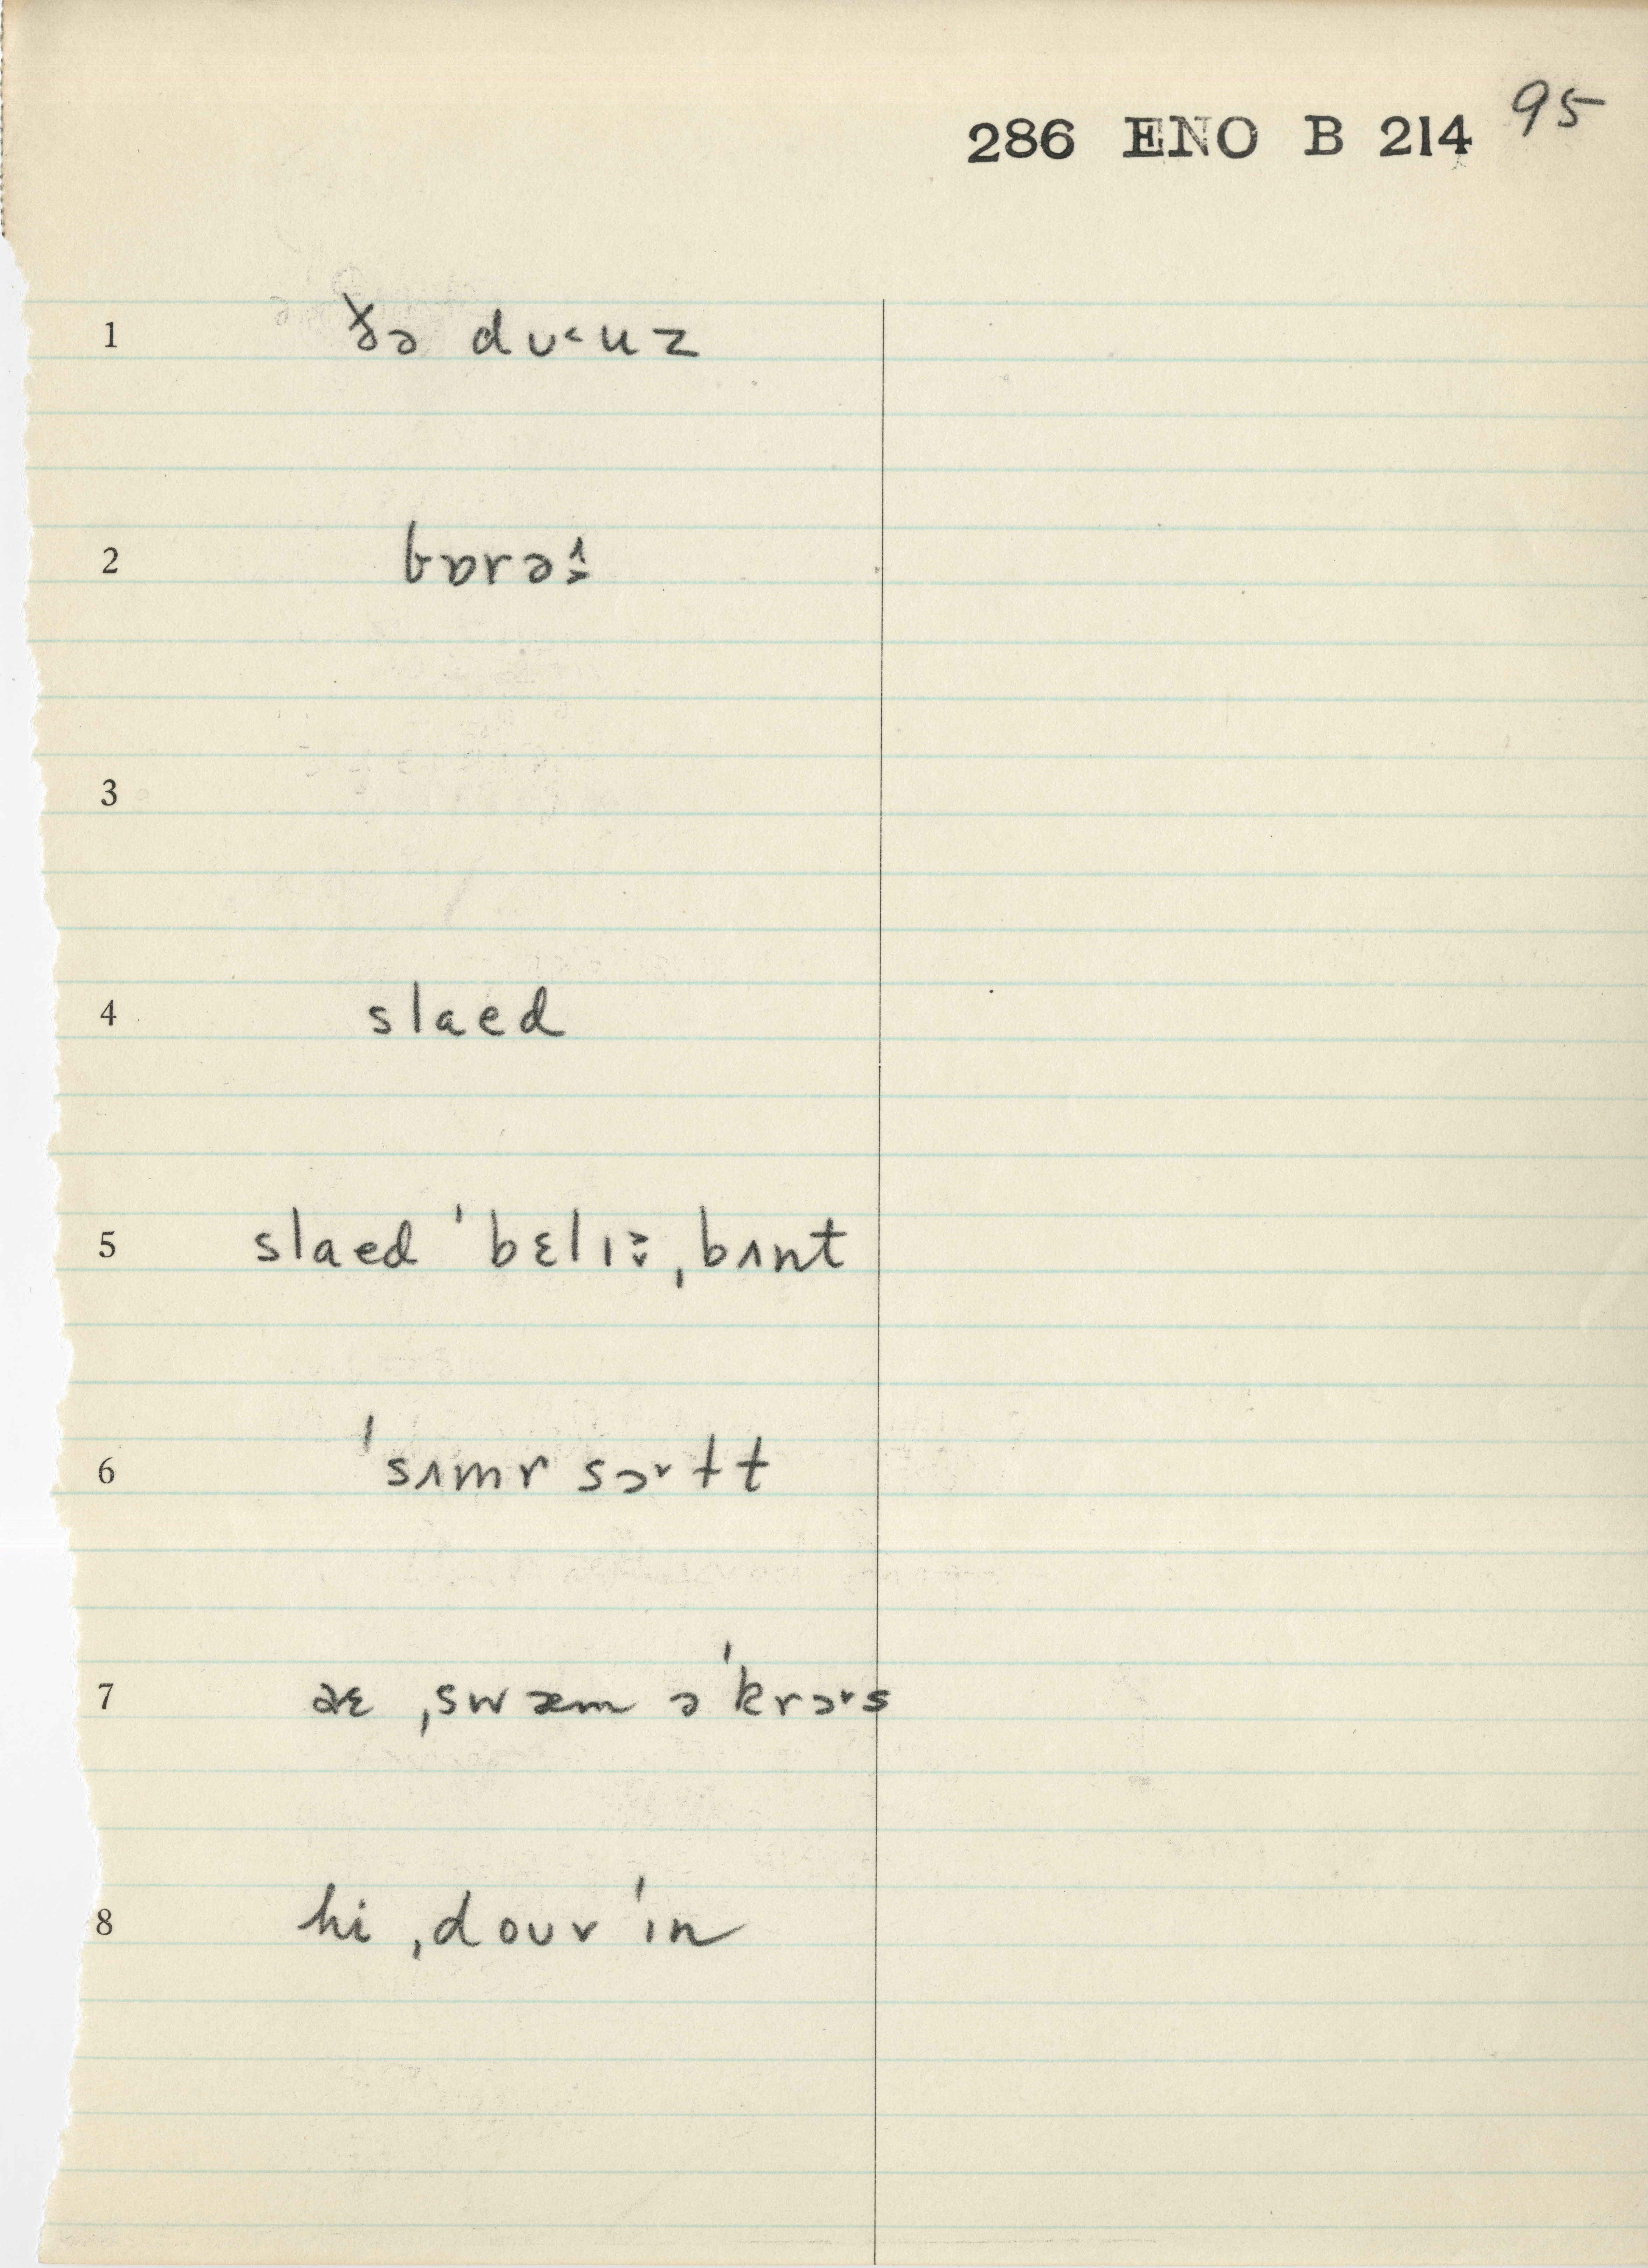 286 ENO B 214 95
1 ðə dʊ˂uz
2 bɒrə
3
4 slaed
5 slaed ˈbɛlɪ ˌbʌnt
6 ˈsʌmr sɔ˞ɫt
7 aɛ ˌswæm əˈkrɔ˞s
8 hi ˌdouv ˈɪn